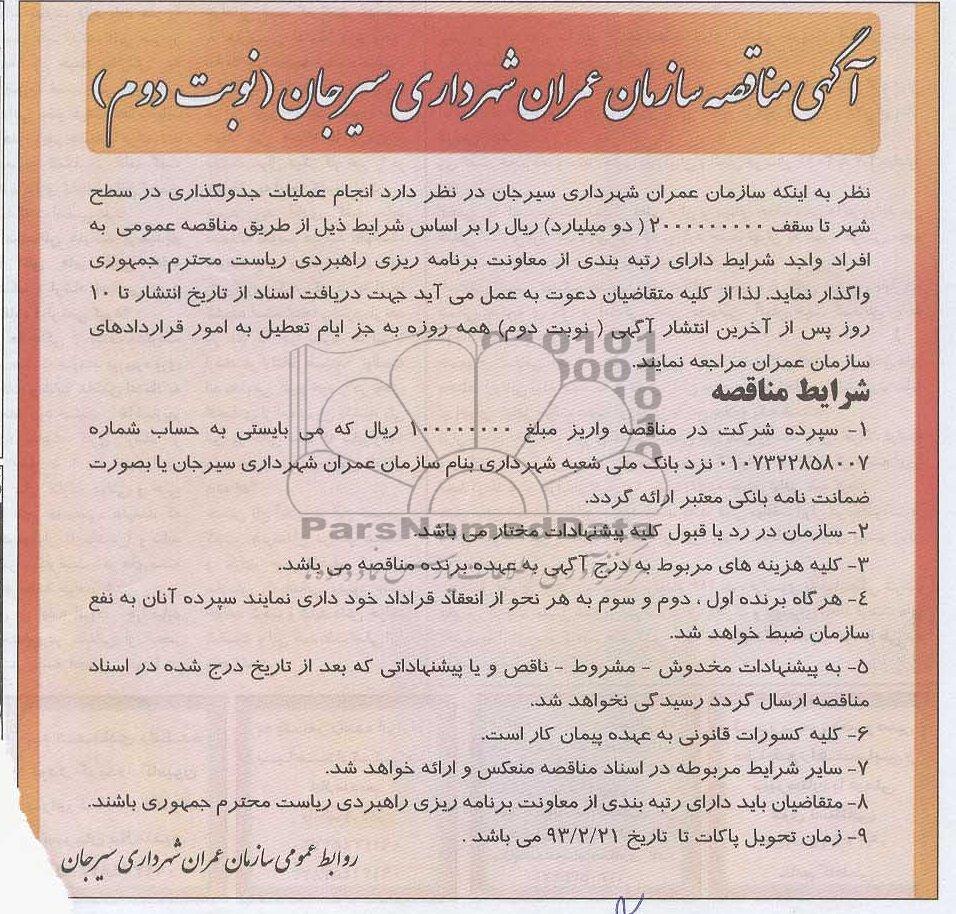 آگهی مناقصه سازمان عمران شهرداری سیرجان (نوبت دوم)
نظر به اینکه سازمان عمران شهرداری سیرجان در نظر دارد انجام عملیات جدولگذاری در سطح
شهر تا سقف ۲۰۰۰۰۰۰۰۰۰ ( دو میلیارد) ریال را بر اساس شرایط ذیل از طریق مناقصه عمومی به
افراد واجد شرایط دارای رتبه بندی از معاونت برنامه ریزی راهبردی ریاست محترم جمهوری
واگذار نماید. لذا از کلیه متقاضیان دعوت به عمل می آید جهت دریافت اسناد از تاریخ انتشار تا ۱۰
روز پس از آخرین انتشار آگهی ( نوبت دوم) همه روزه به جز ایام تعطیل به امور قراردادهای
سازمان عمران مراجعه نمایند.
شرایط مناقصه
۱- سپرده شرکت در مناقصه واریز مبلغ ۱۰۰۰۰۰۰۰۰ ریال که می بایستی به حساب شماره
۰۱۰۷۳۲۲۸۵۸۰۰۷ نزد بانک ملی شعبه شهرداری بنام سازمان عمران شهرداری سیرجان یا بصورت
ضمانت نامه بانکی معتبر ارائه گردد.
ParsNamadData
۲- سازمان در رد یا قبول کلیه پیشنهادات مختار می باشد.
۳- کلیه هزینه های مربوط به درج آگهی به عهده برنده مناقصه می باشد.
۴- هرگاه برنده اول ، دوم و سوم به هر نحو از انعقاد قراداد خود داری نمایند سپرده آنان به نفع
سازمان ضبط خواهد شد.
۵- به پیشنهادات مخدوش - مشروط - ناقص و یا پیشنهاداتی که بعد از تاریخ درج شده در اسناد
مناقصه ارسال گردد رسیدگی نخواهد شد.
۶- کلیه کسورات قانونی به عهده پیمان کار است.
۷- سایر شرایط مربوطه در اسناد مناقصه منعکس و ارائه خواهد شد.
۸- متقاضیان باید دارای رتبه بندی از معاونت برنامه ریزی راهبردی ریاست محترم جمهوری باشند.
۹- زمان تحویل پاکات تا تاریخ ۹۳/۲/۲۱ می باشد .
روابط عمومی سازمان عمران شهرداری سیرجان